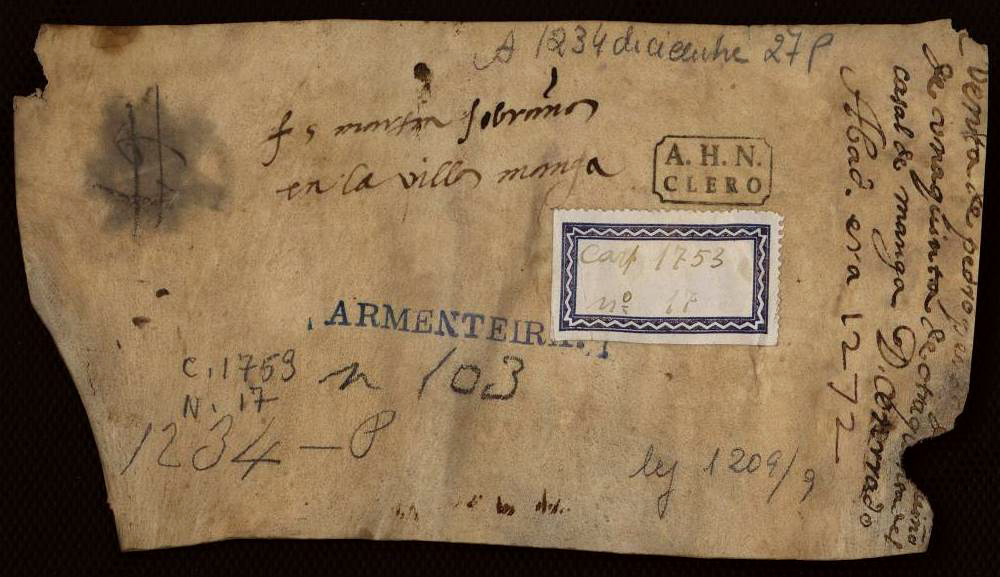 A 1234 diciembre 27 P
en la villa manga
A. H. N.
CLERO
carp 1753
nº 18
ARMENTEIRA
C. 1759
N. 17
n 103
1234-P
leg 1209/9
Venta de pedro
de una quinta de otra
casal de manga D.
Abad. era 1272